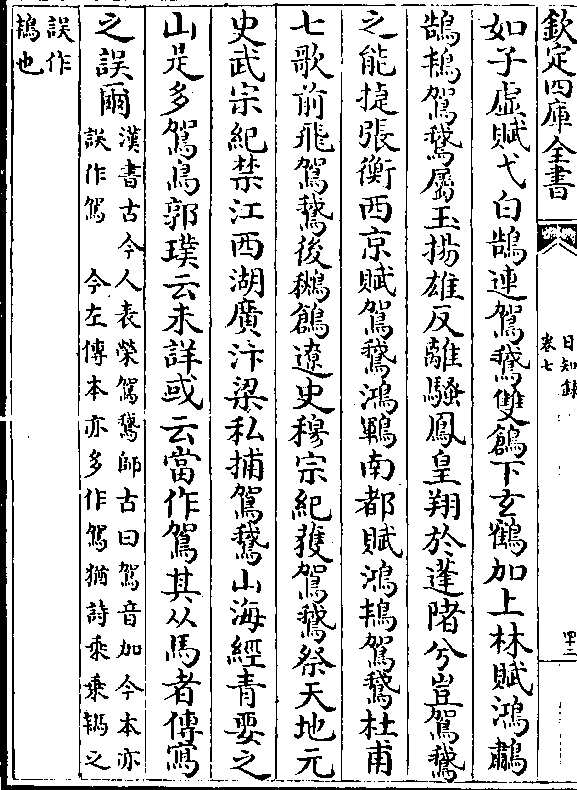 欽定四庫全書
日知錄
卷七
如子虛賦弋白鵠連鴐鵞雙鶬下玄鶴加上林賦鴻鷫
鵠鴇鴐鵞屬玉揚雄反離騷鳳皇翔於蓬陼兮豈鴐鵞
之能捷張衡西京賦鴐鵞鴻鶤南都賦鴻鴇鴐鵞杜甫
七歌前飛鴐鵞後鶖鶬遼史穆宗紀獲鴐鵞祭天地元
史武宗紀禁江西湖廣汴梁私捕鴐鵞山海經青要之
山是多駕鳥郭璞云未詳或云當作鴐其从馬者傳寫
之誤爾
漢書古今人表榮鴐鵞師古曰鴐音加今本亦
誤作駕　今左傳本亦多作駕猶詩乘乘鴇之
誤作
鴇也